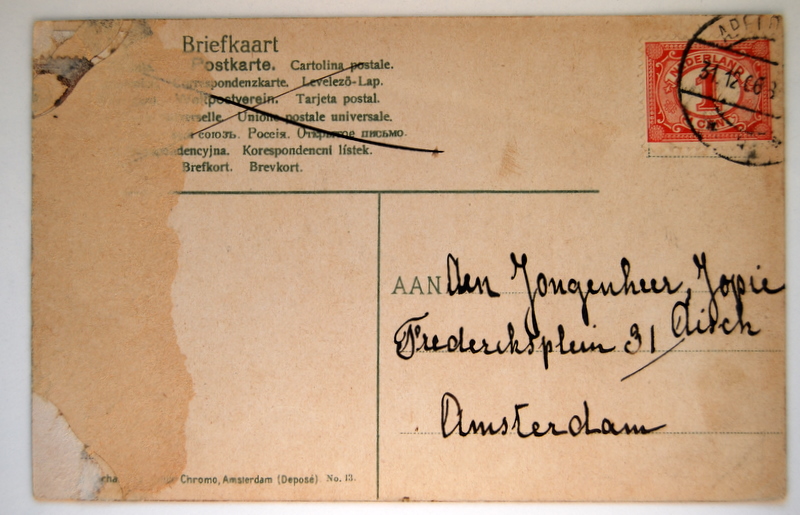 Briefkaart
Postkarte. Cartolina postale.
Correspondenzkarte. Levelező-Lap.
Weltpostverein. Tarjeta postal.
verselle. Unione postale universale.
союзъ. Россія. Открытое письмо.
dencyjna. Korespondencni lístek.
Brefkort. Brevkort.
NEDERLAND
1
CENT
31.12.06
AAN
den Jongenheer, Jopie
Aisch
Frederiksplein 31
Amsterdam
Chromo, Amsterdam (Deposé) No. 13.